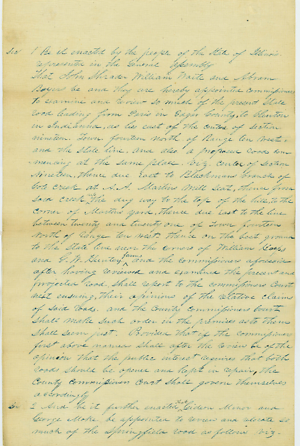 Sec 1 Be it enacted by the people of the State of Illinois
represented in the General Assembly
That John Shrader William White and Abram
Rogers be and they are hereby appointed commissioners
to examine and review so much of the present State
road leading from Paris in Edgar County, to Clinton
in Indiana, as lies east of the center of section
nineteen town fourteen north of Range ten west
and the State line. and also a proposed road com-
mencing at the same place viz. center of section
Nineteen, thence due east to Blackmans branch of
creek at A. A. Martins Mill seat, thence from
creek the way to the top of the hill to the
corner of Martins yard, thence due east to the line
between twenty and twenty one of town fourteen
north of Range ten west thence on the best ground
to the State line near the corners of William
and G. W. farms and the commissioners aforesaid
after having reviewed and examined the present and
projected road, shall report to the commissioners Court
next ensuing, their opinions of the relative claims
of said roads. and the County commissioners Court
shall make such order in the premises as to them
shall seem just. Provided that if the commissioners
first above named shall after the review be of the
opinion that the public interest requires that both
roads should be opened and kept in repair, the
County Commissioners Court shall govern themselves
accordingly
Sec 2 And be it further enacted That Gideon Minor and
George Moke be appointed to review and relocate so
much of the Springfield road as follows viz.